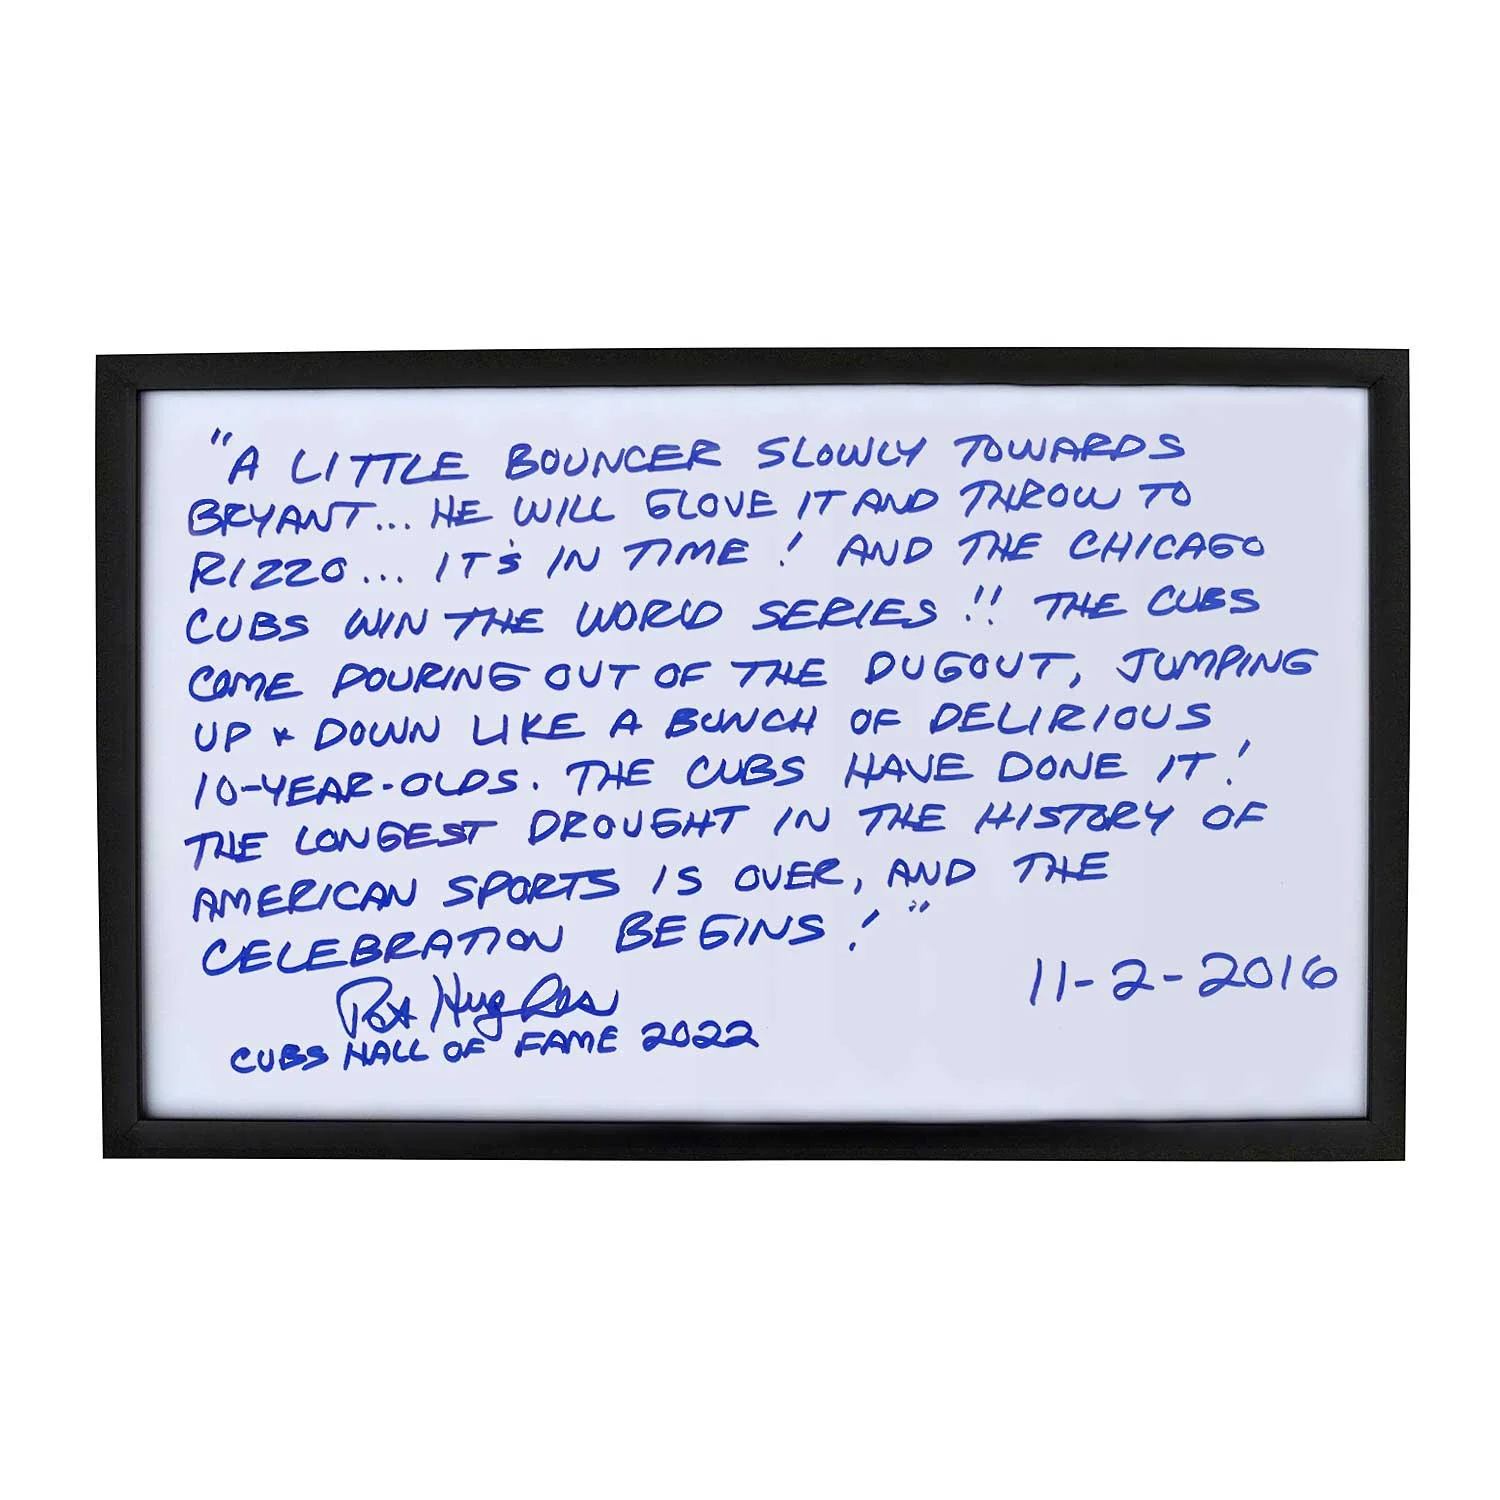 "A LITTLE BOUNCER SLOWLY TOWARDS
BRYANT... HE WILL GLOVE IT AND THROW TO
RIZZO... IT'S IN TIME! AND THE CHICAGO
CUBS WIN THE WORLD SERIES!! THE CUBS
COME POURING OUT OF THE DUGOUT, JUMPING
UP & DOWN LIKE A BUNCH OF DELIRIOUS
10-YEAR-OLDS. THE CUBS HAVE DONE IT!
THE LONGEST DROUGHT IN THE HISTORY OF
AMERICAN SPORTS IS OVER, AND THE
CELEBRATION BEGINS!"
11-2-2016
Pat Hughes
CUBS HALL OF FAME 2022